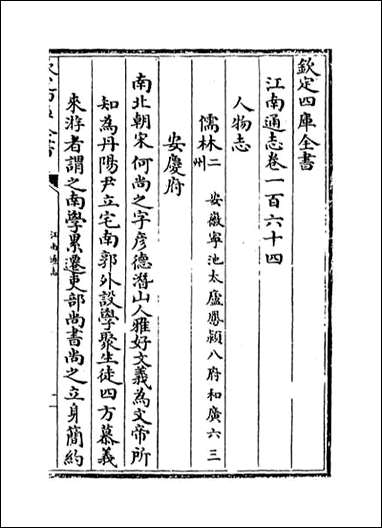 欽定四庫全書
江南通志卷一百六十四
人物志
儒林二 安徽寧池太廬鳳潁八府和廣六三
州
安慶府
南北朝宋何尚之字彦德潛山人雅好文義為文帝所
知為丹陽尹立宅南郭外設學聚生徒四方慕義
來游者謂之南學累遷吏部尚書尚之立身簡約
江南通志